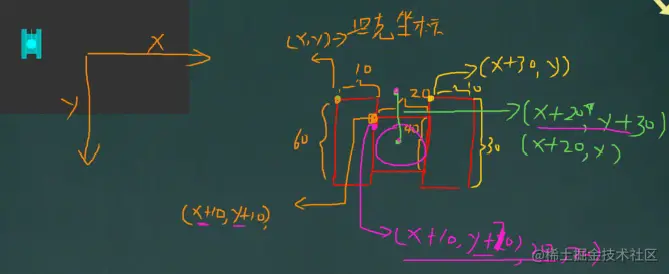 (x,y)→坦克坐标
X
y
10
20
10
(x+30,y)
60
40
30
(x+20,y+30)
(x+20,y)
(x+10,y+10)
@稀土掘金技术社区